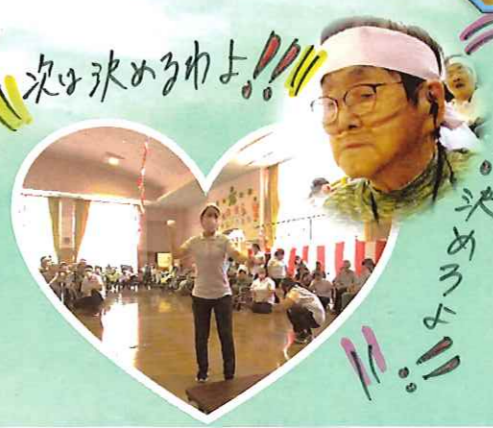 次は決めるわよ!!!
決めろよ!!